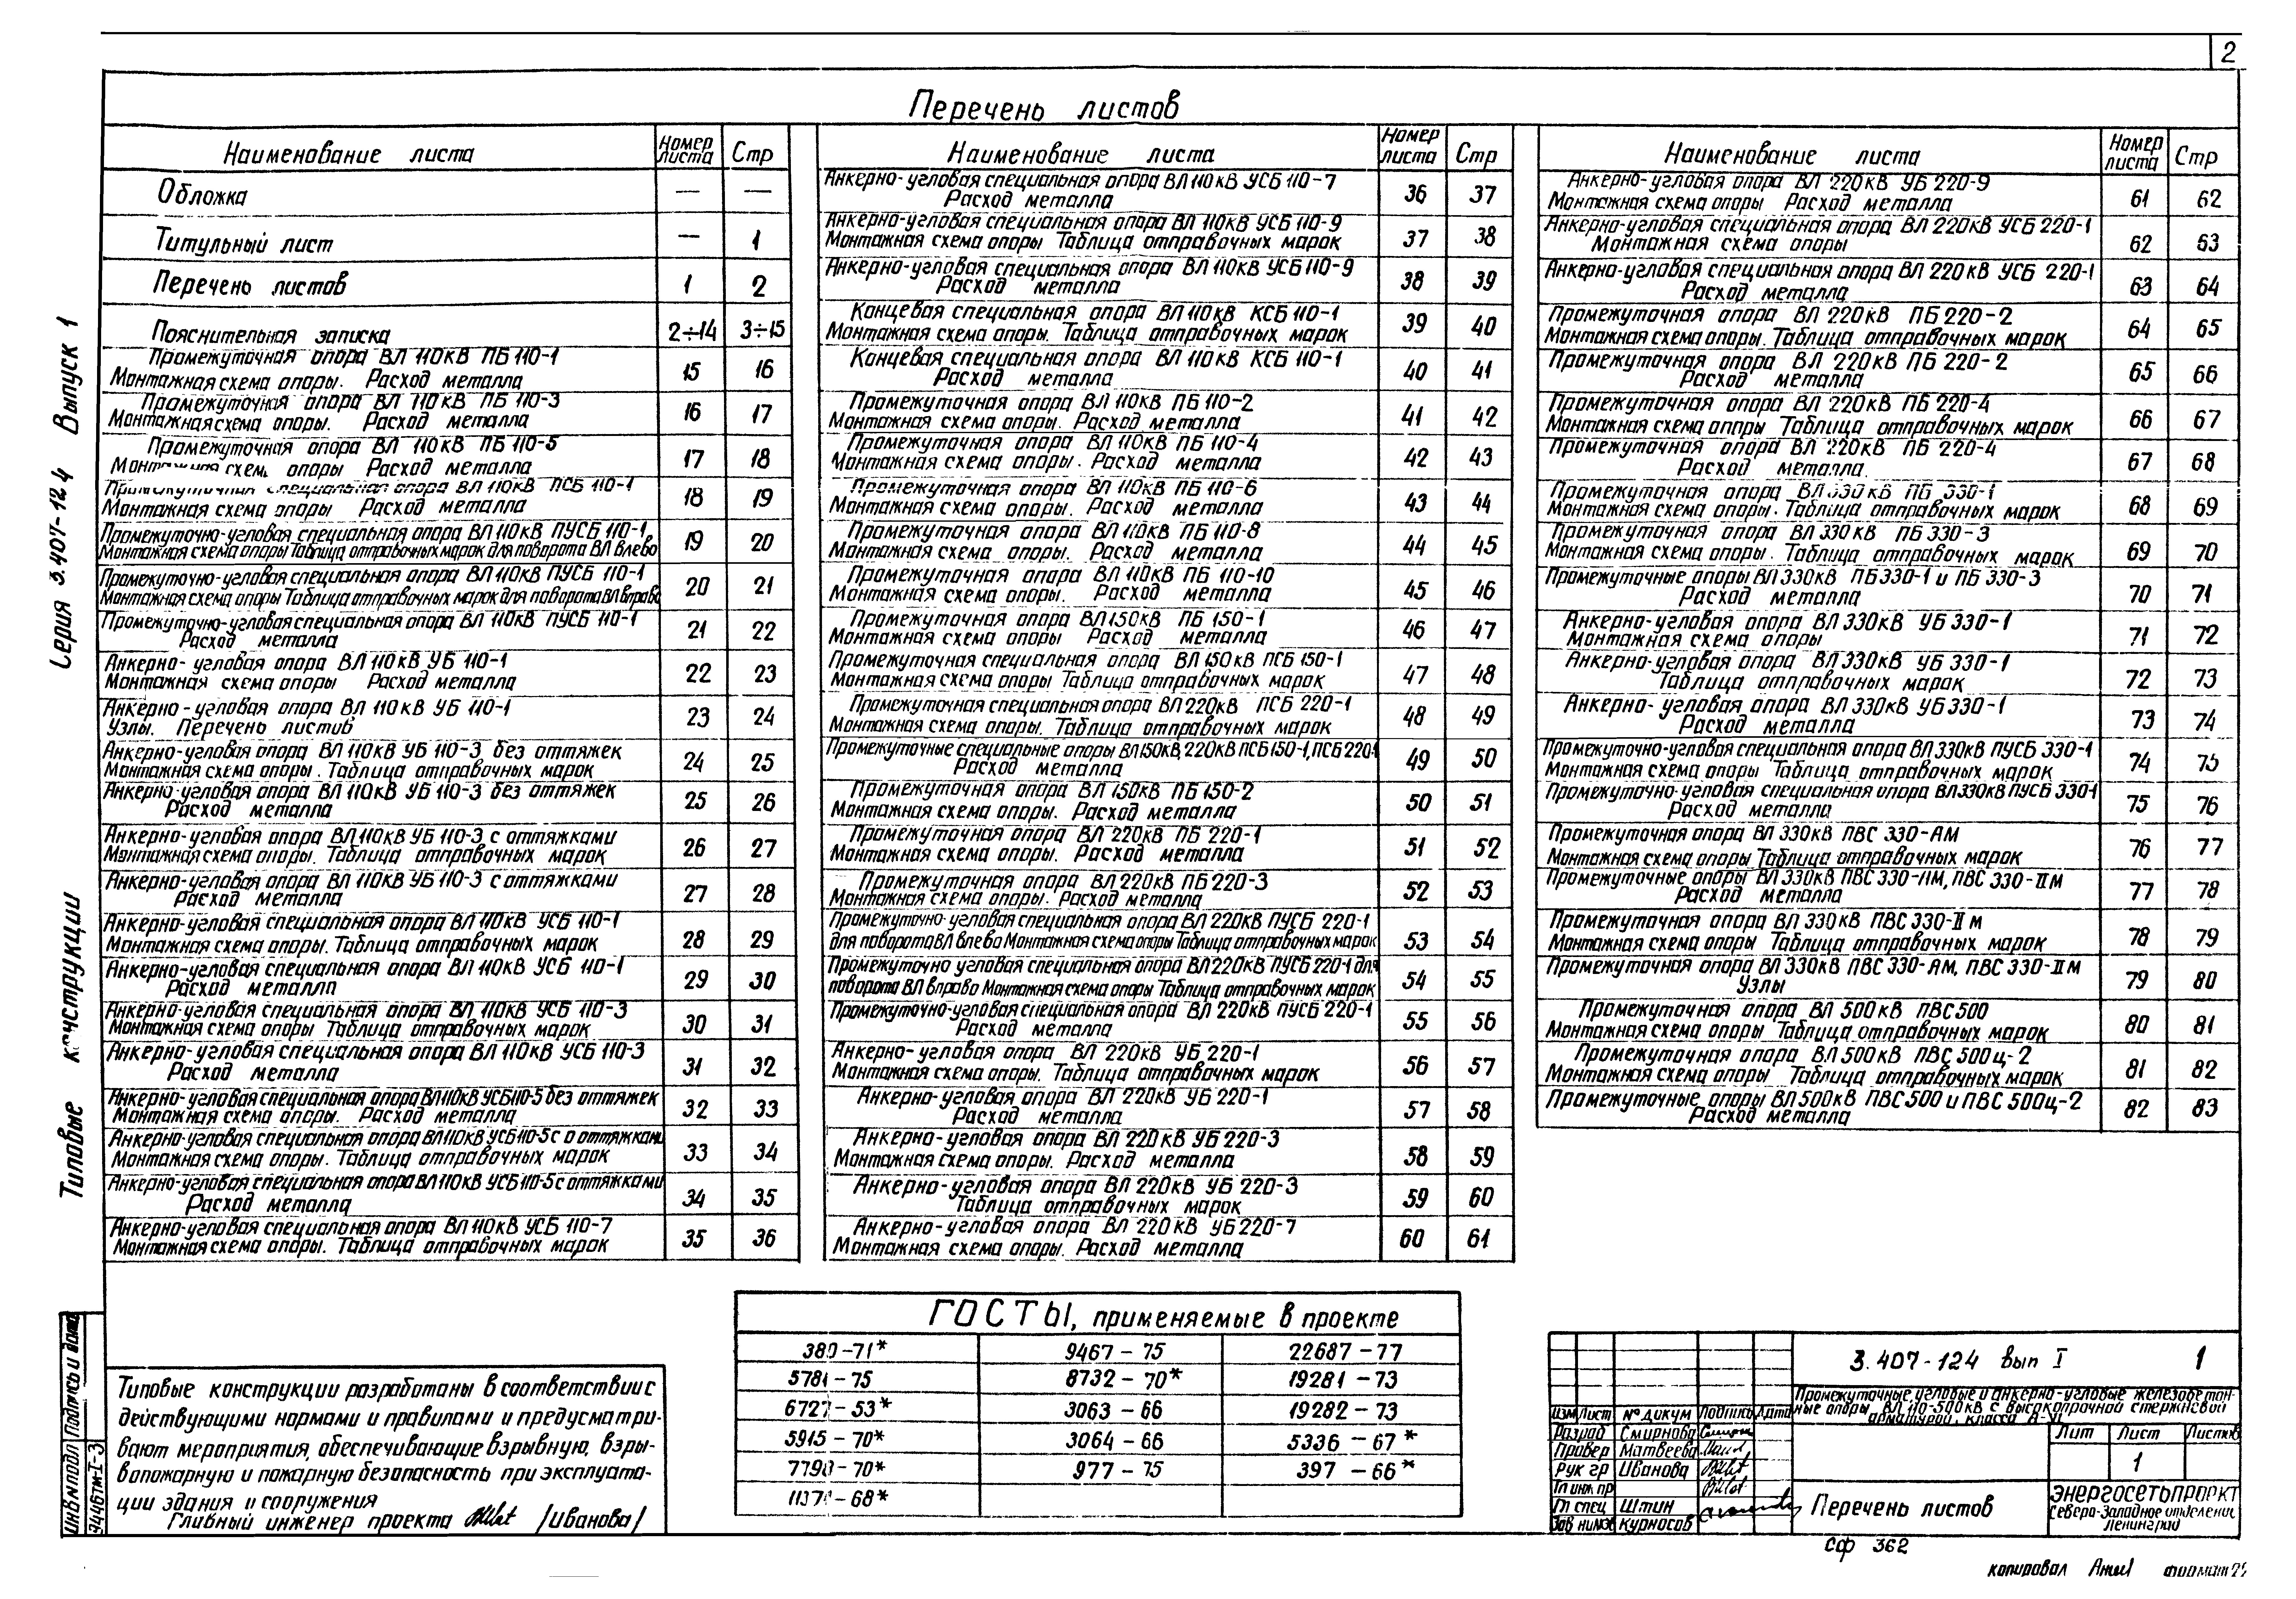 2
Перечень листов
Наименование листа Номер листа Стр
Обложка — —
Титульный лист — 1
Перечень листов 1 2
Пояснительная записка 2÷14 3÷15
Промежуточная опора ВЛ 110кВ ПБ 110-1
Монтажная схема опоры. Расход металла 15 16
Промежуточная опора ВЛ 110кВ ПБ 110-3
Монтажная схема опоры. Расход металла 16 17
Промежуточная опора ВЛ 110кВ ПБ 110-5
Монтажная схема опоры Расход металла 17 18
Промежуточная специальная опора ВЛ 110кВ ПСБ 110-1
Монтажная схема опоры Расход металла 18 19
Промежуточно-угловая специальная опора ВЛ 110кВ ПУСБ 110-1
Монтажная схема опоры Таблица отправочных марок для поворота ВЛ влево 19 20
Промежуточно-угловая специальная опора ВЛ 110кВ ПУСБ 110-1
Монтажная схема опоры Таблица отправочных марок для поворота ВЛ вправо 20 21
Промежуточно-угловая специальная опора ВЛ 110кВ ПУСБ 110-1
Расход металла 21 22
Анкерно-угловая опора ВЛ 110кВ УБ 110-1
Монтажная схема опоры Расход металла 22 23
Анкерно-угловая опора ВЛ 110кВ УБ 110-1
Узлы. Перечень листов 23 24
Анкерно-угловая опора ВЛ 110кВ УБ 110-3 без оттяжек
Монтажная схема опоры. Таблица отправочных марок 24 25
Анкерно-угловая опора ВЛ 110кВ УБ 110-3 без оттяжек
Расход металла 25 26
Анкерно-угловая опора ВЛ 110кВ УБ 110-3 с оттяжками
Монтажная схема опоры. Таблица отправочных марок 26 27
Анкерно-угловая опора ВЛ 110кВ УБ 110-3 с оттяжками
Расход металла 27 28
Анкерно-угловая специальная опора ВЛ 110кВ УСБ 110-1
Монтажная схема опоры. Таблица отправочных марок 28 29
Анкерно-угловая специальная опора ВЛ 110кВ УСБ 110-1
Расход металла 29 30
Анкерно-угловая специальная опора ВЛ 110кВ УСБ 110-3
Монтажная схема опоры Таблица отправочных марок 30 31
Анкерно-угловая специальная опора ВЛ 110кВ УСБ 110-3
Расход металла 31 32
Анкерно-угловая специальная опора ВЛ110кВ УСБ110-5 без оттяжек
Монтажная схема опоры. Расход металла 32 33
Анкерно-угловая специальная опора ВЛ110кВ УСБ110-5 с оттяжками
Монтажная схема опоры. Таблица отправочных марок 33 34
Анкерно-угловая специальная опора ВЛ110кВ УСБ110-5 с оттяжками
Расход металла 34 35
Анкерно-угловая специальная опора ВЛ 110кВ УСБ 110-7
Монтажная схема опоры. Таблица отправочных марок 35 36
Наименование листа Номер листа Стр
Анкерно-угловая специальная опора ВЛ 110кВ УСБ 110-7
Расход металла 36 37
Анкерно-угловая специальная опора ВЛ 110кВ УСБ 110-9
Монтажная схема опоры Таблица отправочных марок 37 38
Анкерно-угловая специальная опора ВЛ 110кВ УСБ 110-9
Расход металла 38 39
Концевая специальная опора ВЛ 110кВ КСБ 110-1
Монтажная схема опоры. Таблица отправочных марок 39 40
Концевая специальная опора ВЛ 110кВ КСБ 110-1
Расход металла 40 41
Промежуточная опора ВЛ 110кВ ПБ 110-2
Монтажная схема опоры. Расход металла 41 42
Промежуточная опора ВЛ 110кВ ПБ 110-4
Монтажная схема опоры. Расход металла 42 43
Промежуточная опора ВЛ 110кВ ПБ 110-6
Монтажная схема опоры. Расход металла 43 44
Промежуточная опора ВЛ 110кВ ПБ 110-8
Монтажная схема опоры. Расход металла 44 45
Промежуточная опора ВЛ 110кВ ПБ 110-10
Монтажная схема опоры. Расход металла 45 46
Промежуточная опора ВЛ150кВ ПБ 150-1
Монтажная схема опоры Расход металла 46 47
Промежуточная специальная опора ВЛ 150кВ ПСБ 150-1
Монтажная схема опоры Таблица отправочных марок 47 48
Промежуточная специальная опора ВЛ220кВ ПСБ 220-1
Монтажная схема опоры. Таблица отправочных марок 48 49
Промежуточные специальные опоры ВЛ150кВ, 220кВ ПСБ150-1, ПСБ220-1
Расход металла 49 50
Промежуточная опора ВЛ 150кВ ПБ 150-2
Монтажная схема опоры. Расход металла 50 51
Промежуточная опора ВЛ 220кВ ПБ 220-1
Монтажная схема опоры. Расход металла 51 52
Промежуточная опора ВЛ 220кВ ПБ 220-3
Монтажная схема опоры. Расход металла 52 53
Промежуточно-угловая специальная опора ВЛ 220кВ ПУСБ 220-1
для поворота ВЛ влево Монтажная схема опоры Таблица отправочных марок 53 54
Промежуточно угловая специальная опора ВЛ220кВ ПУСБ 220-1 для
поворота ВЛ вправо Монтажная схема опоры Таблица отправочных марок 54 55
Промежуточно-угловая специальная опора ВЛ 220кВ ПУСБ 220-1
Расход металла 55 56
Анкерно-угловая опора ВЛ 220кВ УБ 220-1
Монтажная схема опоры. Таблица отправочных марок 56 57
Анкерно-угловая опора ВЛ 220кВ УБ 220-1
Расход металла 57 58
Анкерно-угловая опора ВЛ 220кВ УБ 220-3
Монтажная схема опоры. Расход металла 58 59
Анкерно-угловая опора ВЛ 220кВ УБ 220-3
Таблица отправочных марок 59 60
Анкерно-угловая опора ВЛ 220кВ УБ 220-7
Монтажная схема опоры. Расход металла 60 61
Наименование листа Номер листа Стр
Анкерно-угловая опора ВЛ 220кВ УБ 220-9
Монтажная схема опоры Расход металла 61 62
Анкерно-угловая специальная опора ВЛ 220кВ УСБ 220-1
Монтажная схема опоры 62 63
Анкерно-угловая специальная опора ВЛ 220кВ УСБ 220-1
Расход металла 63 64
Промежуточная опора ВЛ 220кВ ПБ 220-2
Монтажная схема опоры. Таблица отправочных марок 64 65
Промежуточная опора ВЛ 220кВ ПБ 220-2
Расход металла 65 66
Промежуточная опора ВЛ 220кВ ПБ 220-4
Монтажная схема опоры Таблица отправочных марок 66 67
Промежуточная опора ВЛ 220кВ ПБ 220-4
Расход металла. 67 68
Промежуточная опора ВЛ 330кВ ПБ 330-1
Монтажная схема опоры. Таблица отправочных марок 68 69
Промежуточная опора ВЛ 330кВ ПБ 330-3
Монтажная схема опоры. Таблица отправочных марок 69 70
Промежуточные опоры ВЛ 330кВ ПБ330-1 и ПБ 330-3
Расход металла 70 71
Анкерно-угловая опора ВЛ 330кВ УБ 330-1
Монтажная схема опоры 71 72
Анкерно-угловая опора ВЛ 330кВ УБ 330-1
Таблица отправочных марок 72 73
Анкерно-угловая опора ВЛ 330кВ УБ 330-1
Расход металла 73 74
Промежуточно-угловая специальная опора ВЛ 330кВ ПУСБ 330-1
Монтажная схема опоры Таблица отправочных марок 74 75
Промежуточно-угловая специальная опора ВЛ330кВ ПУСБ 330-1
Расход металла 75 76
Промежуточная опора ВЛ 330кВ ПВС 330-АМ
Монтажная схема опоры Таблица отправочных марок 76 77
Промежуточные опоры ВЛ 330кВ ПВС 330-АМ, ПВС 330-IIМ
Расход металла 77 78
Промежуточная опора ВЛ 330кВ ПВС 330-II м
Монтажная схема опоры Таблица отправочных марок 78 79
Промежуточная опора ВЛ 330кВ ПВС 330-АМ, ПВС 330-IIм
Узлы 79 80
Промежуточная опора ВЛ 500кВ ПВС500
Монтажная схема опоры Таблица отправочных марок 80 81
Промежуточная опора ВЛ 500кВ ПВС 500ц-2
Монтажная схема опоры Таблица отправочных марок 81 82
Промежуточные опоры ВЛ 500кВ ПВС500 и ПВС 500ц-2
Расход металла 82 83
Типовые конструкции Серия 3.407-124 Выпуск 1
ГОСТЫ, применяемые в проекте
380-71* 9467-75 22687-77
5781-75 8732-70* 19281-73
6727-53* 3063-66 19282-73
5915-70* 3064-66 5336-67*
7798-70* 977-75 397-66*
11371-68*
Типовые конструкции разработаны в соответствии с
действующими нормами и правилами и предусматри-
вают мероприятия, обеспечивающие взрывную, взры-
вопожарную и пожарную безопасность при эксплуата-
ции здания и сооружения
Главный инженер проекта /Иванова/
Инв № подл Подпись и дата
9446тм-I-3
3.407-124 вып I 1
Промежуточные угловые и анкерно-угловые железобетон-
ные опоры ВЛ 110-500кВ с высокопрочной стержневой
арматурой класса А-VI
Изм Лист № докум Подпись Дата
Разраб Смирнова
Провер Матвеева
Рук гр Иванова
Гл инж пр
Гл спец Штин
Зав Курносов
Лит Лист Листов
1
Перечень листов
ЭНЕРГОСЕТЬПРОЕКТ
Северо-Западное отделение
Ленинград
сф 362
копировал Формат